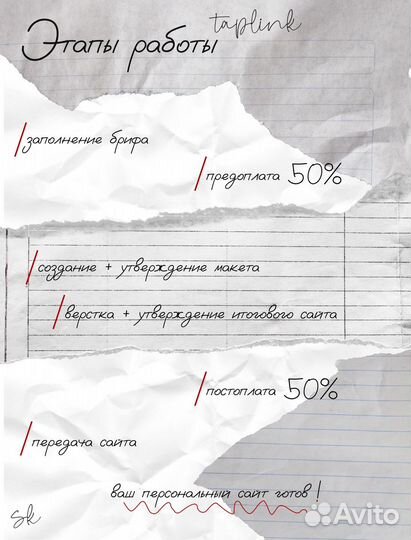 taplink
Этапы работы
/заполнение брифа
/предоплата 50%
/создание + утверждение макета
/верстка + утверждение итогового сайта
/постоплата 50%
/передача сайта
ваш персональный сайт готов!
sk
Avito